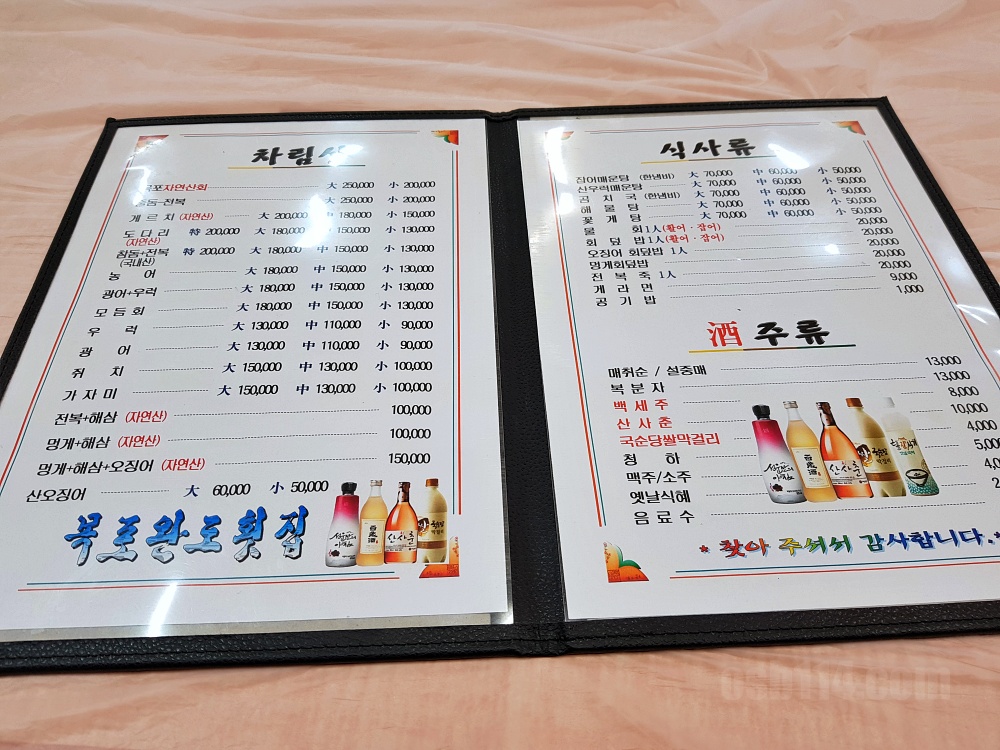 차림
자연산회 大 250,000 小 200,000
전복 大 250,000 小 200,000
게르치 (자연산) 大 200,000 中 180,000 小 150,000
도다리 (자연산) 特 200,000 大 180,000 中 150,000 小 130,000
참돔+전복 (국내산) 特 200,000 大 180,000 中 150,000 小 130,000
농 어 大 180,000 中 150,000 小 130,000
광어+우럭 大 180,000 中 150,000 小 130,000
모듬회 大 180,000 中 150,000 小 130,000
우 럭 大 130,000 中 110,000 小 90,000
광 어 大 130,000 中 110,000 小 90,000
쥐 치 大 150,000 中 130,000 小 100,000
가자미 大 150,000 中 130,000 小 100,000
전복+해삼 (자연산) 100,000
멍게+해삼 (자연산) 100,000
멍게+해삼+오징어 (자연산) 150,000
산오징어 大 60,000 小 50,000
목포완도횟집
식사류
잡어매운탕 (한냄비) 大 70,000 中 60,000 小 50,000
산우럭매운탕 大 70,000 中 60,000 小 50,000
곰 치 국 (한냄비) 大 70,000 中 60,000 小 50,000
해 물 탕 大 70,000 中 60,000 小 50,000
꽃 게 탕 大 70,000 中 60,000 小 50,000
물 회 1人(활어·잡어) 20,000
회 덮 밥 1人(활어·잡어) 20,000
오징어 회덮밥 1人 20,000
멍게회덮밥 20,000
전 복 죽 1人 20,000
게 라 면 9,000
공 기 밥 1,000
酒 주류
매취순 / 설중매 13,000
복 분 자 13,000
백 세 주 8,000
산 사 춘 10,000
국순당쌀막걸리 4,000
청 하
맥주/소주
옛날식혜
음 료 수
* 찾아 주셔서 감사합니다.*